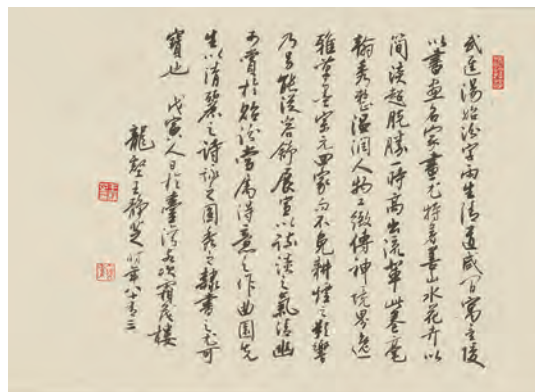 武進湯貽汾字雨生清道咸間寓金陵
以書畫名家畫尤特著善山水花卉以
簡淡超脫勝一時高出流輩此卷毫
翰秀整溫潤人物工緻傳神境界逸
雅草堂宋元四家而不免耕煙之影響
乃另能從容舒展寓以疏淡之氣清幽
可賞於貽汾當屬得意之作曲園先
生以清麗之詩詠之圓秀之隸書之尤可
寶也 戊寅人日於臺灣古坎霜茂樓
龍壑王靜芝時年八十有三